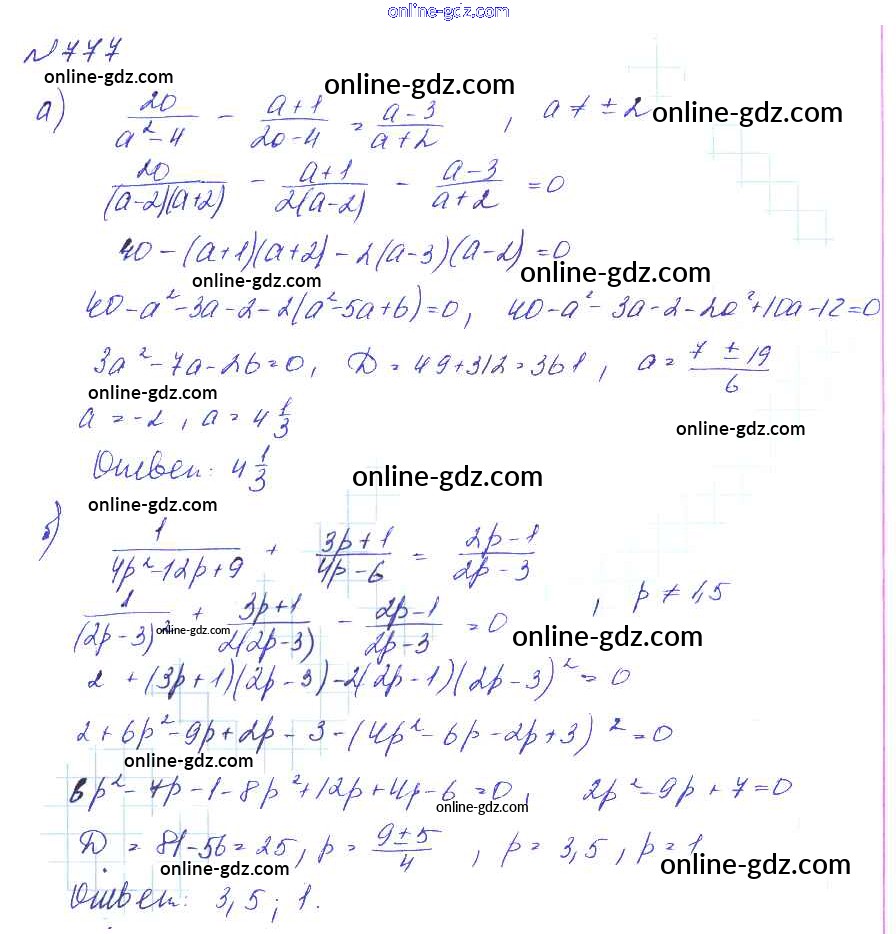 online-gdz.com
№ 777
online-gdz.com online-gdz.com
а) 20/(a²-4) - (a+1)/(2a-4) = (a-3)/(a+2), a ≠ ± 2 online-gdz.com
20/((a-2)(a+2)) - (a+1)/(2(a-2)) - (a-3)/(a+2) = 0
40-(a+1)(a+2)-2(a-3)(a-2)=0
online-gdz.com online-gdz.com
40-a²-3a-2-2(a²-5a+6)=0, 40-a²-3a-2-2a²+10a-12=0
3a²-7a-26=0, D = 49+312=361, a = (7 ± 19)/6
online-gdz.com
a = -2, a = 4 1/3
online-gdz.com
Ответ: 4 1/3
online-gdz.com
online-gdz.com
б) 1/(4p²-12p+9) + (3p+1)/(4p-6) = (2p-1)/(2p-3)
1/(2p-3)² + (3p+1)/(2(2p-3)) - (2p-1)/(2p-3) = 0, p ≠ 1,5
online-gdz.com online-gdz.com
2 + (3p+1)(2p-3)-2(2p-1)(2p-3)² = 0
2+6p²-9p+2p-3-(4p²-6p-2p+3)²=0
online-gdz.com
6p²-7p-1-8p²+12p+4p-6=0, 2p²-9p+7=0
online-gdz.com
D = 81-56=25, p = (9±5)/4, p = 3,5, p=1
online-gdz.com online-gdz.com
Ответ: 3,5; 1.